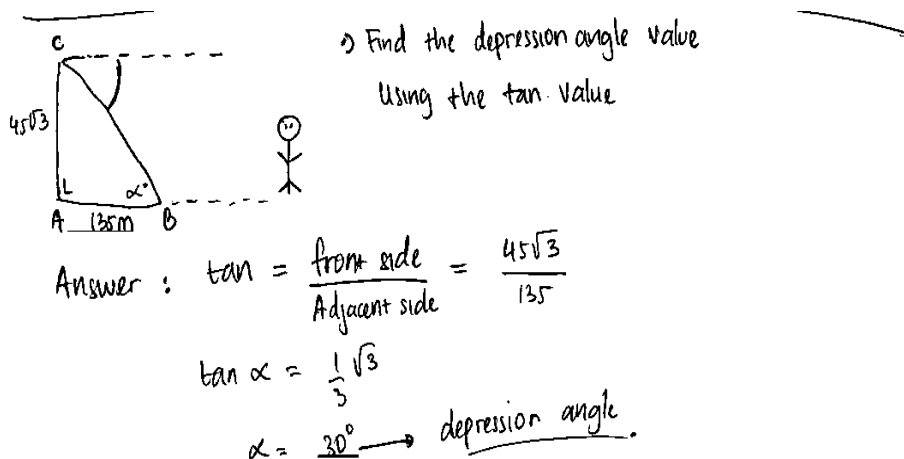 C
•) Find the depression angle value
Using the tan. Value
45√3
α°
A 135m B
Answer : tan = front side / Adjacent side = 45√3 / 135
tan α = 1/3 √3
α = 30° → depression angle.